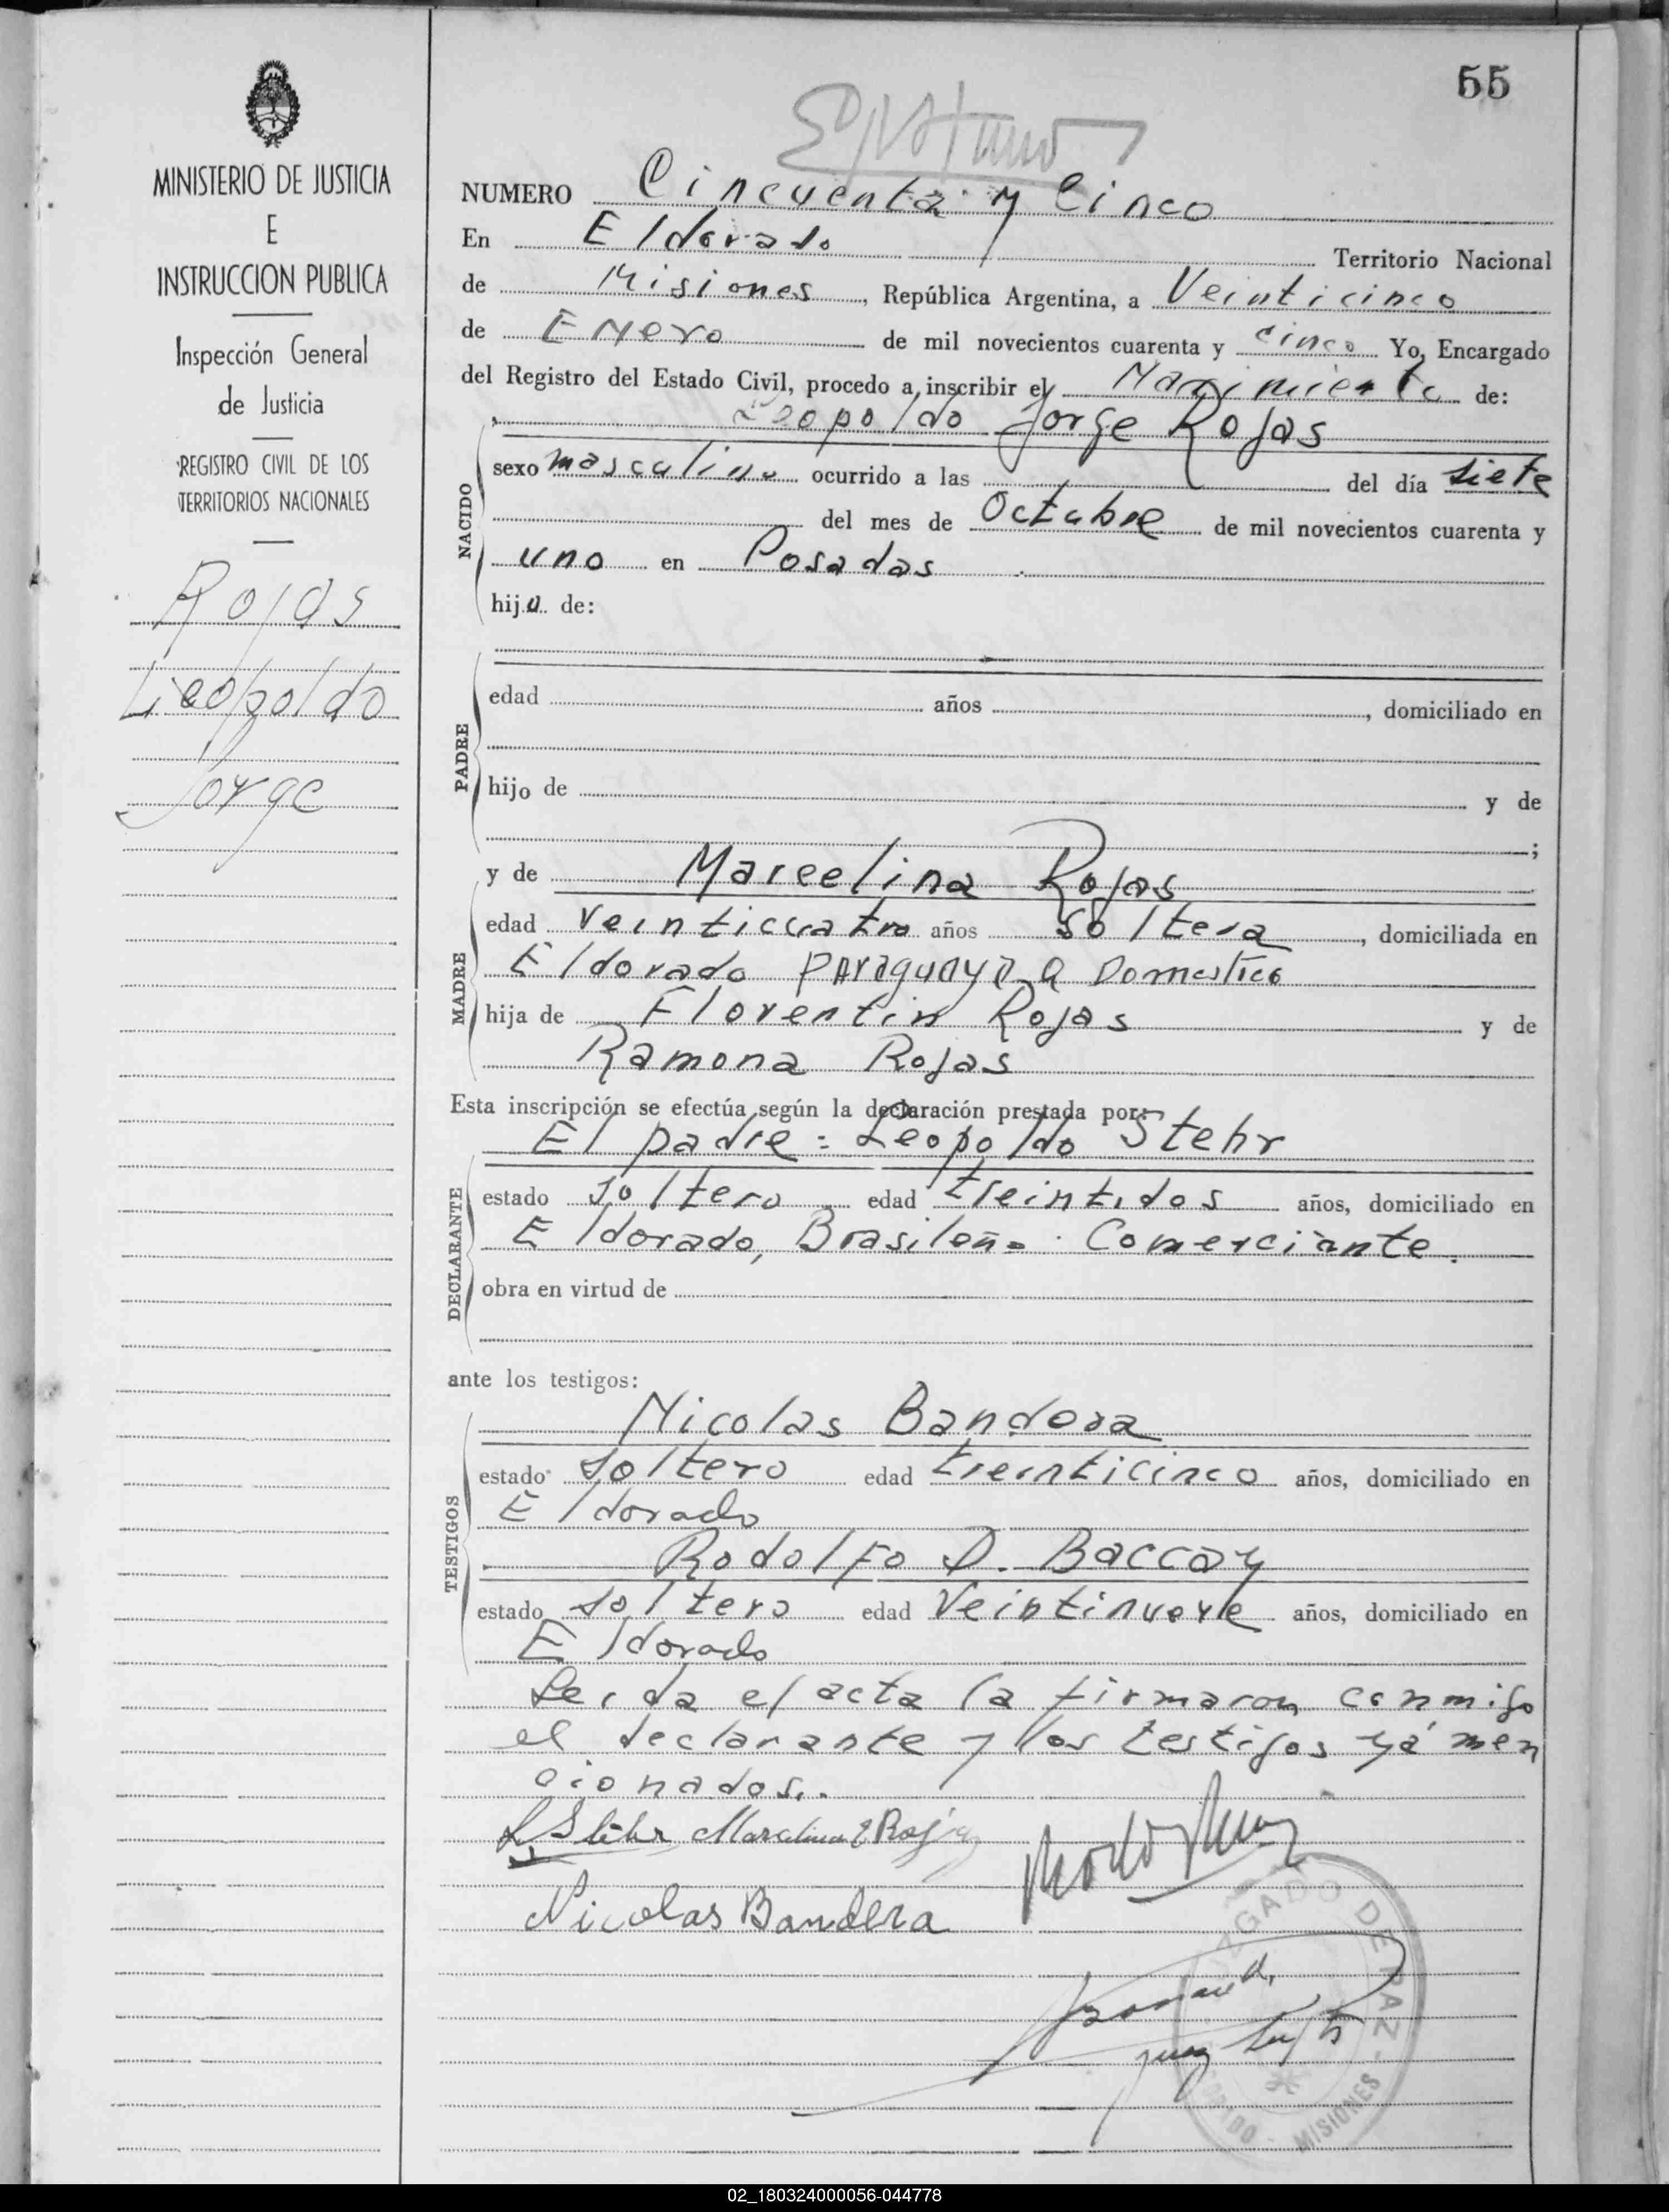 55
MINISTERIO DE JUSTICIA
E
INSTRUCCION PUBLICA
Inspección General
de Justicia
REGISTRO CIVIL DE LOS
TERRITORIOS NACIONALES
Rojas
Leopoldo
Jorge
NUMERO Cincuenta y Cinco
En Eldorado Territorio Nacional
de Misiones, República Argentina, a Veinticinco
de Enero de mil novecientos cuarenta y cinco Yo, Encargado
del Registro del Estado Civil, procedo a inscribir el Nacimiento de:
Leopoldo Jorge Rojas
NACIDO
sexo masculino ocurrido a las del día siete
del mes de Octubre de mil novecientos cuarenta y
uno en Posadas
hijo de:
PADRE
edad años , domiciliado en
hijo de y de
;
y de Marcelina Rojas
MADRE
edad veinticuatro años soltera, domiciliada en
Eldorado Paraguaya Domestica
hija de Florentin Rojas y de
Ramona Rojas
Esta inscripción se efectúa según la declaración prestada por:
El padre = Leopoldo Stehr
DECLARANTE
estado soltero edad treintidos años, domiciliado en
Eldorado, Brasileño. Comerciante.
obra en virtud de
ante los testigos:
TESTIGOS
Nicolas Bandera
estado soltero edad treinticinco años, domiciliado en
Eldorado
Rodolfo D. Baccay
estado soltero edad Veintinueve años, domiciliado en
Eldorado
Leida el acta la firmaron conmigo
el declarante y los testigos yá men
cionados.
L Stehr Marcelina E Rojas
Nicolas Bandera
JUZGADO DE PAZ - ELDORADO - MISIONES
02_180324000056-044778